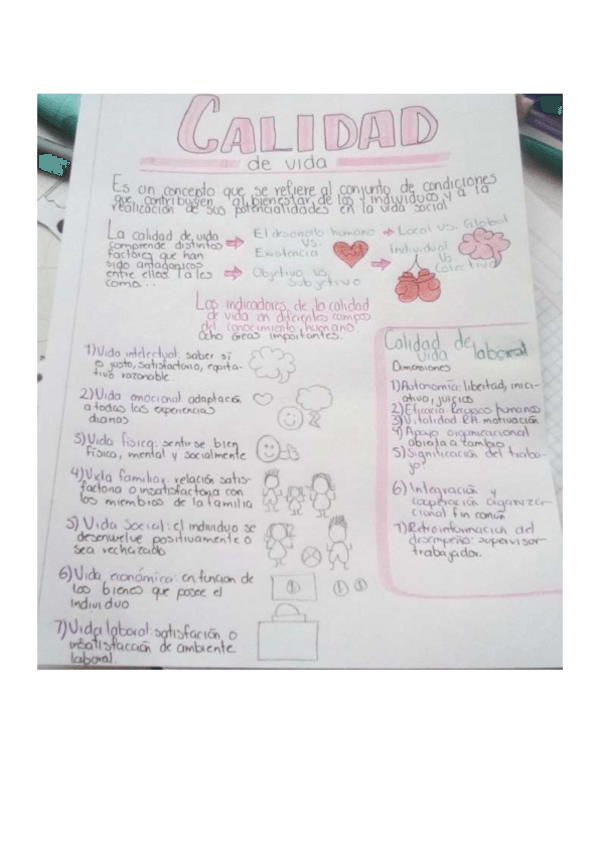 CALIDAD
de vida
Es un concepto que se refiere al conjunto de condiciones
que contribuyen al bienestar de los individuos y a la
realización de sus potencialidades en la vida social
La calidad de vida
comprende distintos
factores que han
sido antagonicos
entre ellos. Tales
como...
El desarrollo humano
vs.
Existencia
Objetivo vs.
Subjetivo
Local vs. Global
Individual
Vs
Colectivo
Los indicadores de la calidad
de vida en diferentes campos
del conocimiento humano
Ocho áreas importantes.
1) Vida intelectual: saber si
es justo, satisfactorio, equita-
tivo razonable.
2) Vida emocional: adaptación
a todas las experiencias
diarias
3) Vida física: sentirse bien
física, mental y socialmente
4) Vida familiar: relación satis-
factoria o insatisfactoria con
los miembros de la familia
5) Vida Social: el individuo se
desenvuelve positivamente o
sea rechazado
6) Vida económica: en función de
los bienes que posee el
individuo
7) Vida laboral: satisfación o
insatisfacción de ambiente
laboral.
Calidad de
vida laboral
Dimensiones
1) Autonomía: libertad, inici-
ativa, juicios
2) Eficacia Recursos humanos
3) Vitalidad R.A. motivación
4) Apoyo organizacional
abierta a cambio
5) Significación del traba-
jo?
6) Integración y
cooperación organiza-
cional fin común
7) Retroinformación del
desempeño: supervisor
trabajador.